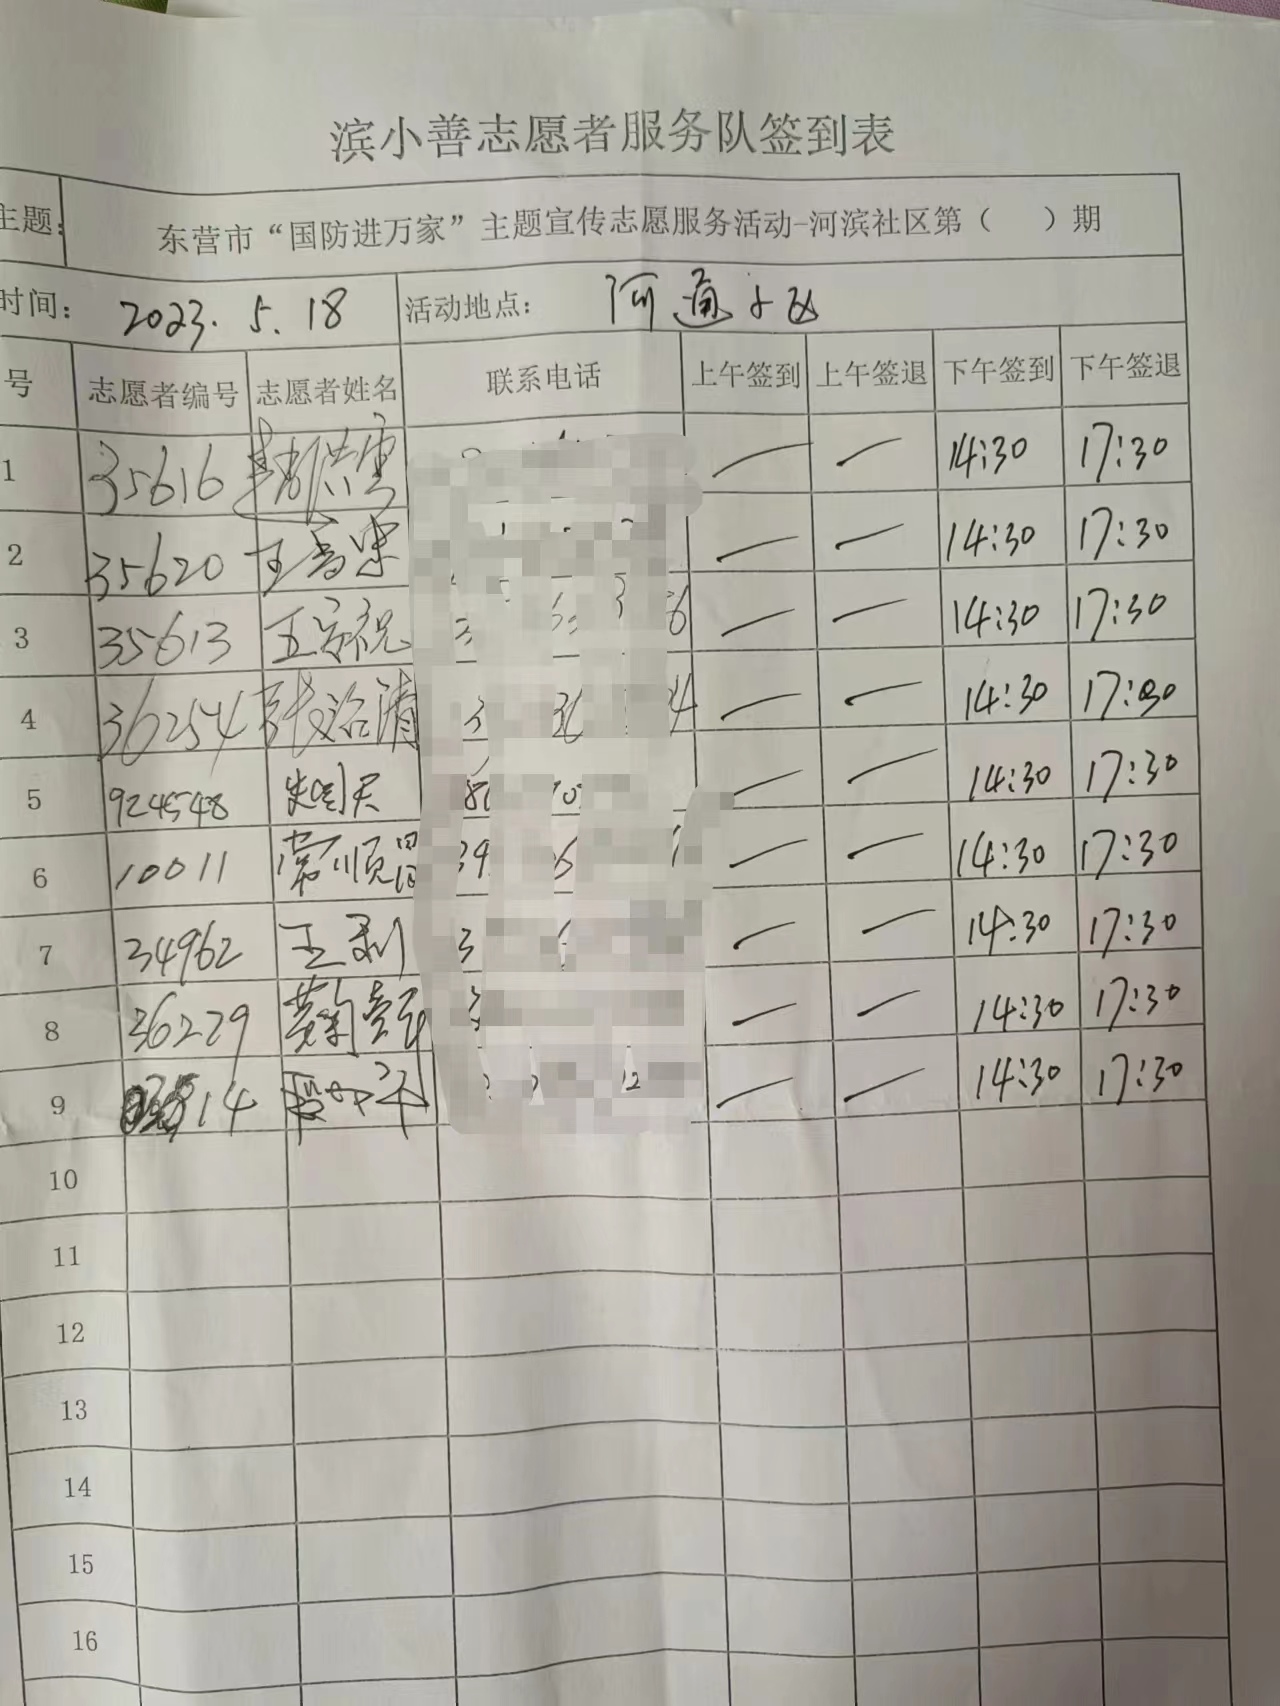 滨小善志愿者服务队签到表
主题: 东营市“国防进万家”主题宣传志愿服务活动-河滨社区第（ ）期
时间: 2023.5.18 活动地点: 河通小区
号 志愿者编号 志愿者姓名 联系电话 上午签到 上午签退 下午签到 下午签退
1 35616 — — 14:30 17:30
2 35620 — — 14:30 17:30
3 35613 — — 14:30 17:30
4 36254 张治清 — — 14:30 17:30
5 924548 — — 14:30 17:30
6 10011 常顺 — — 14:30 17:30
7 34962 王利 — — 14:30 17:30
8 36229 — — 14:30 17:30
9 14 — — 14:30 17:30
10
11
12
13
14
15
16